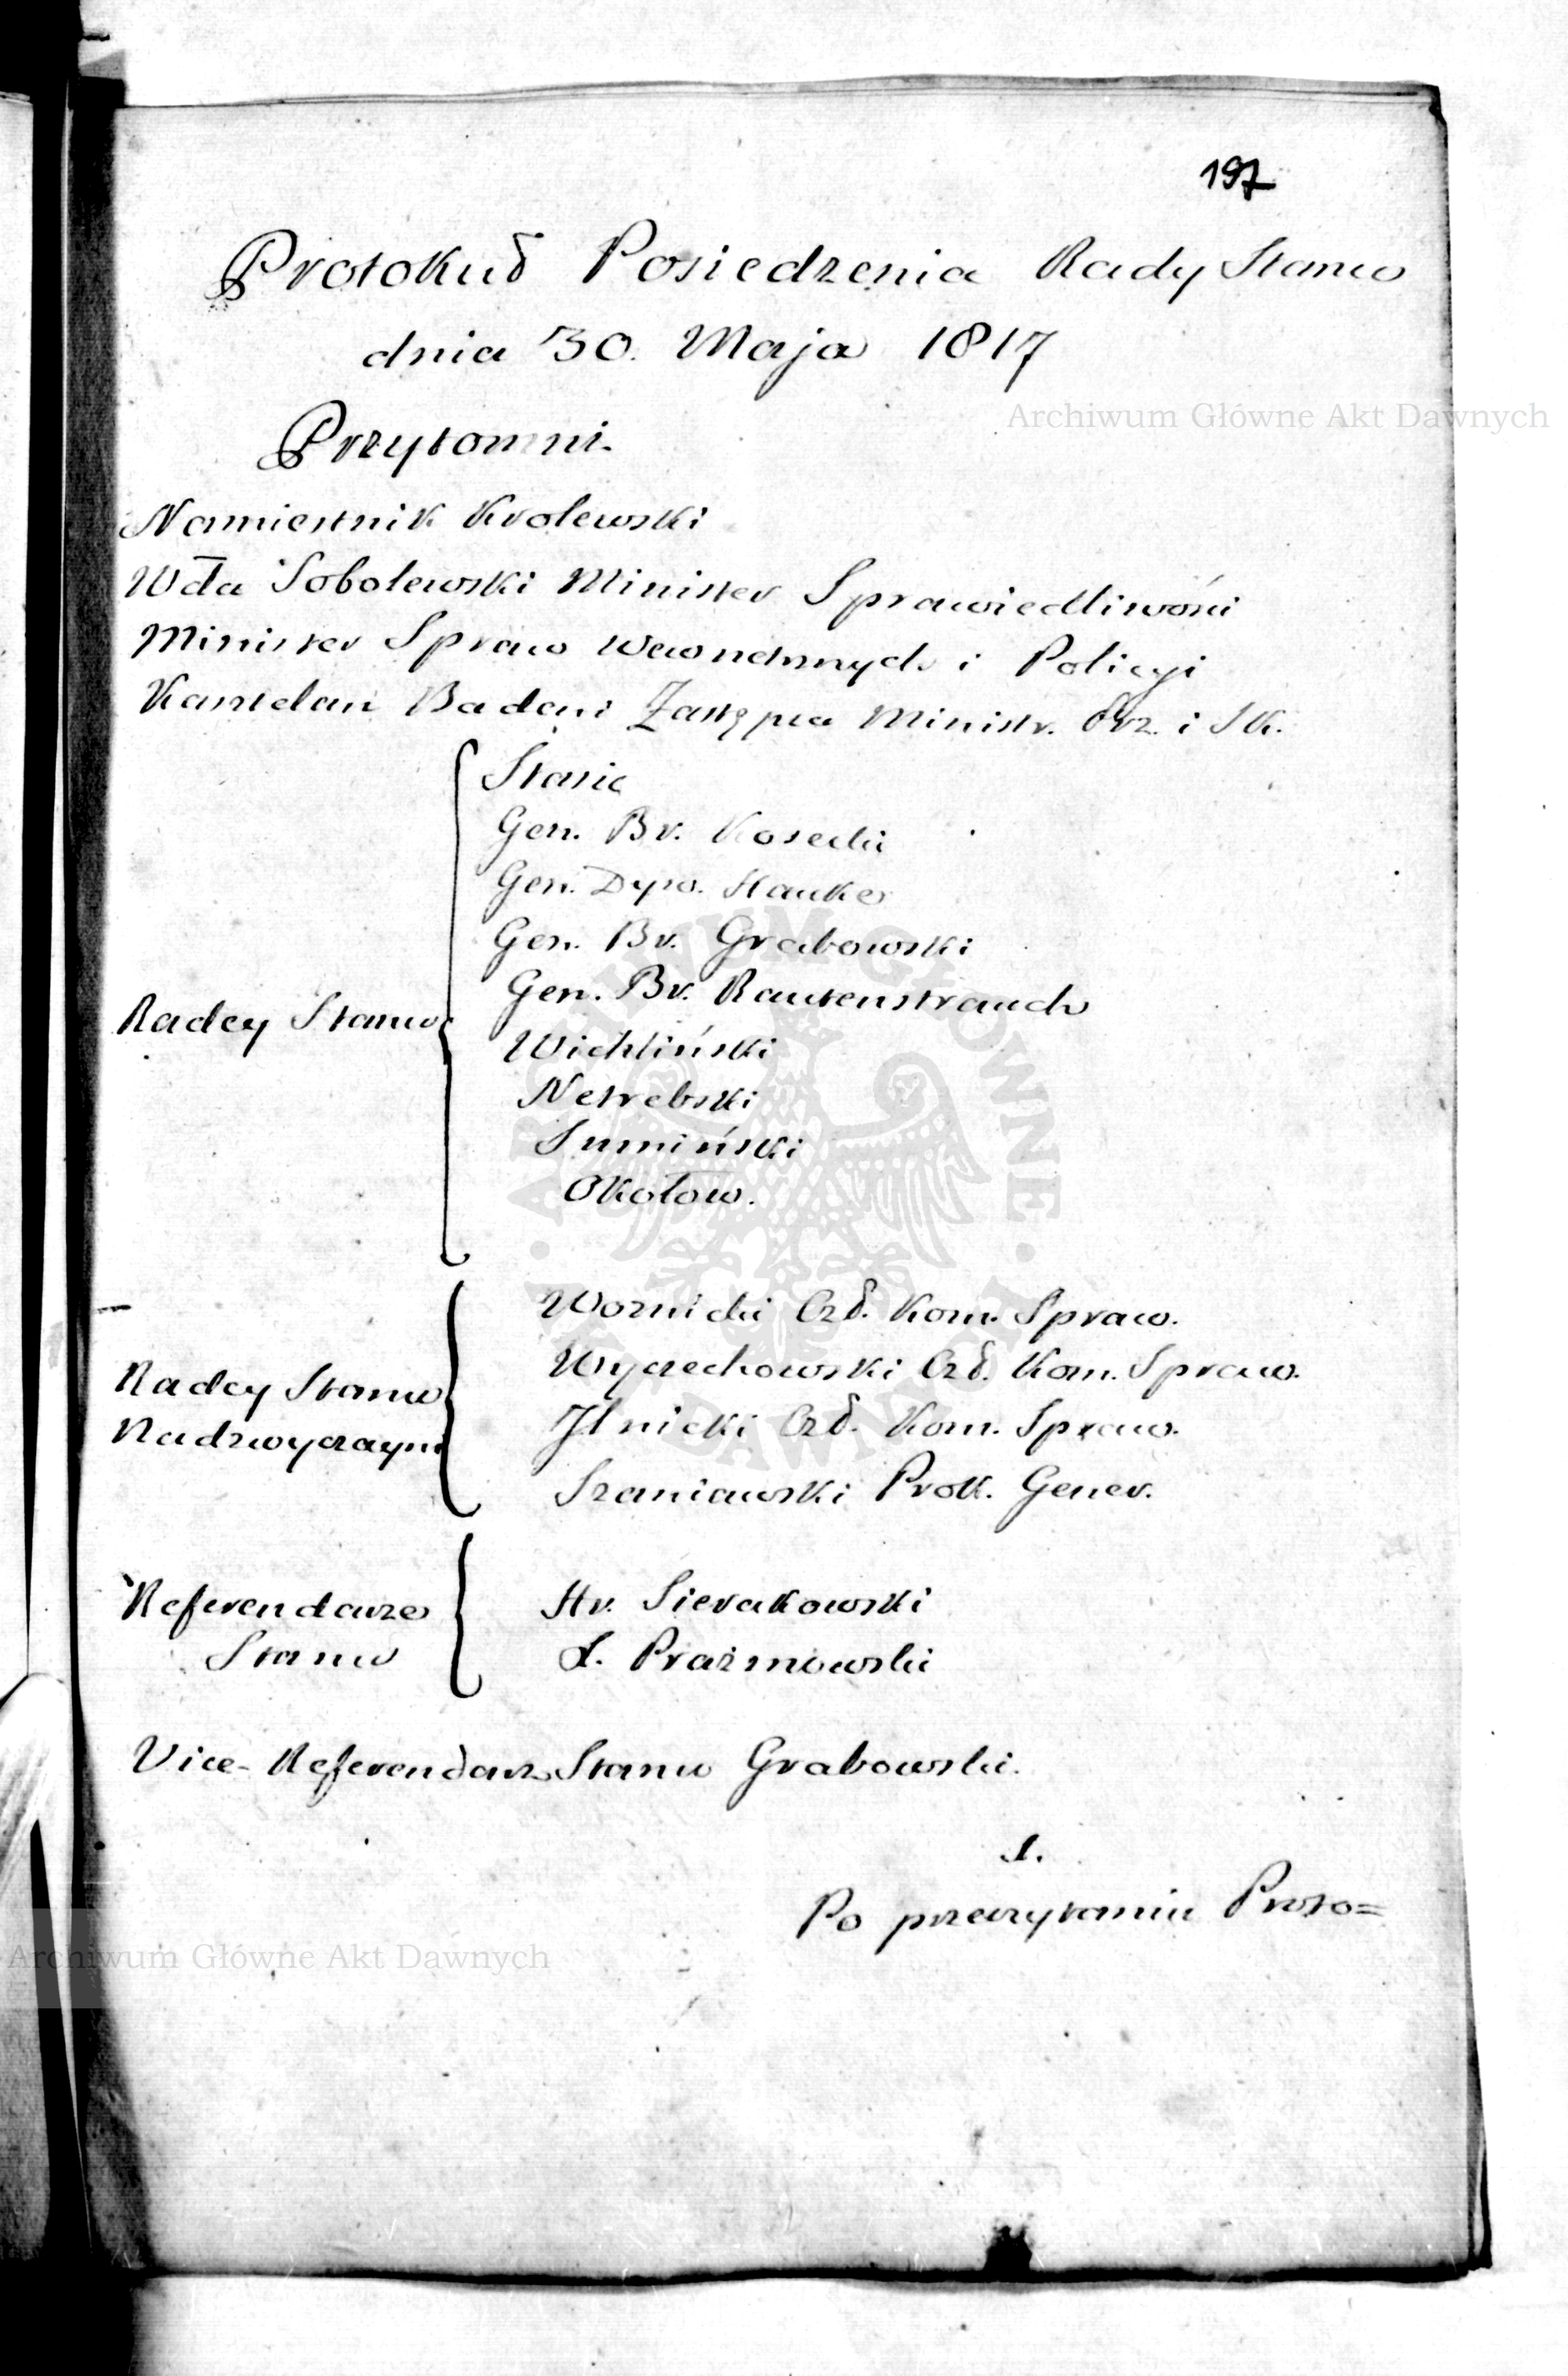 197
Protokuł Posiedzenia Rady Stanu
dnia 30. Maja 1817
Archiwum Główne Akt Dawnych
Przytomni
Namiestnik Krolewski
Wda Sobolewski Minister Sprawiedliwości
Minister Spraw Wewnętrznych i Policyi
Kasztelan Badeni Zastępca Ministr. Prz. i Sk.
Radcy Stanu
Stasic
Gen. Br. Kosecki
Gen. Dyw. Hauke
Gen. Br. Grabowski
Gen. Br. Rautenstrauch
Wichliński
Netrebski
Sumiński
Okołow.
Radcy Stanu
Nadzwyczayni
Woznicki Czł. Kom. Spraw.
Wyczechowski Czł. Kom. Spraw.
Jlnicki Czł. Kom. Spraw.
Szaniawski Prok. Gener.
Referendarze
Stanu
Hr. Sierakowski
X. Prażmowski
Vice-Referendarz Stanu Grabowski.
1.
Po przeczytaniu Proto=
Archiwum Główne Akt Dawnych